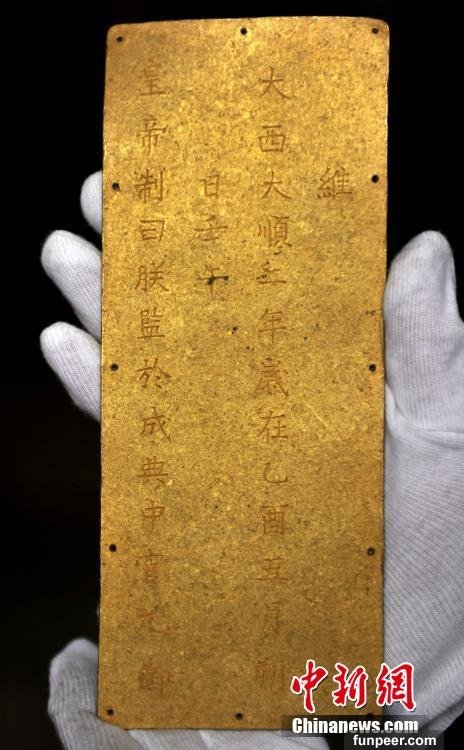 維
大西大順二年歲在乙酉五月朔
日壬午
皇帝制曰朕監於成典中宮九御
中新網
Chinanews.com
funpeer.com